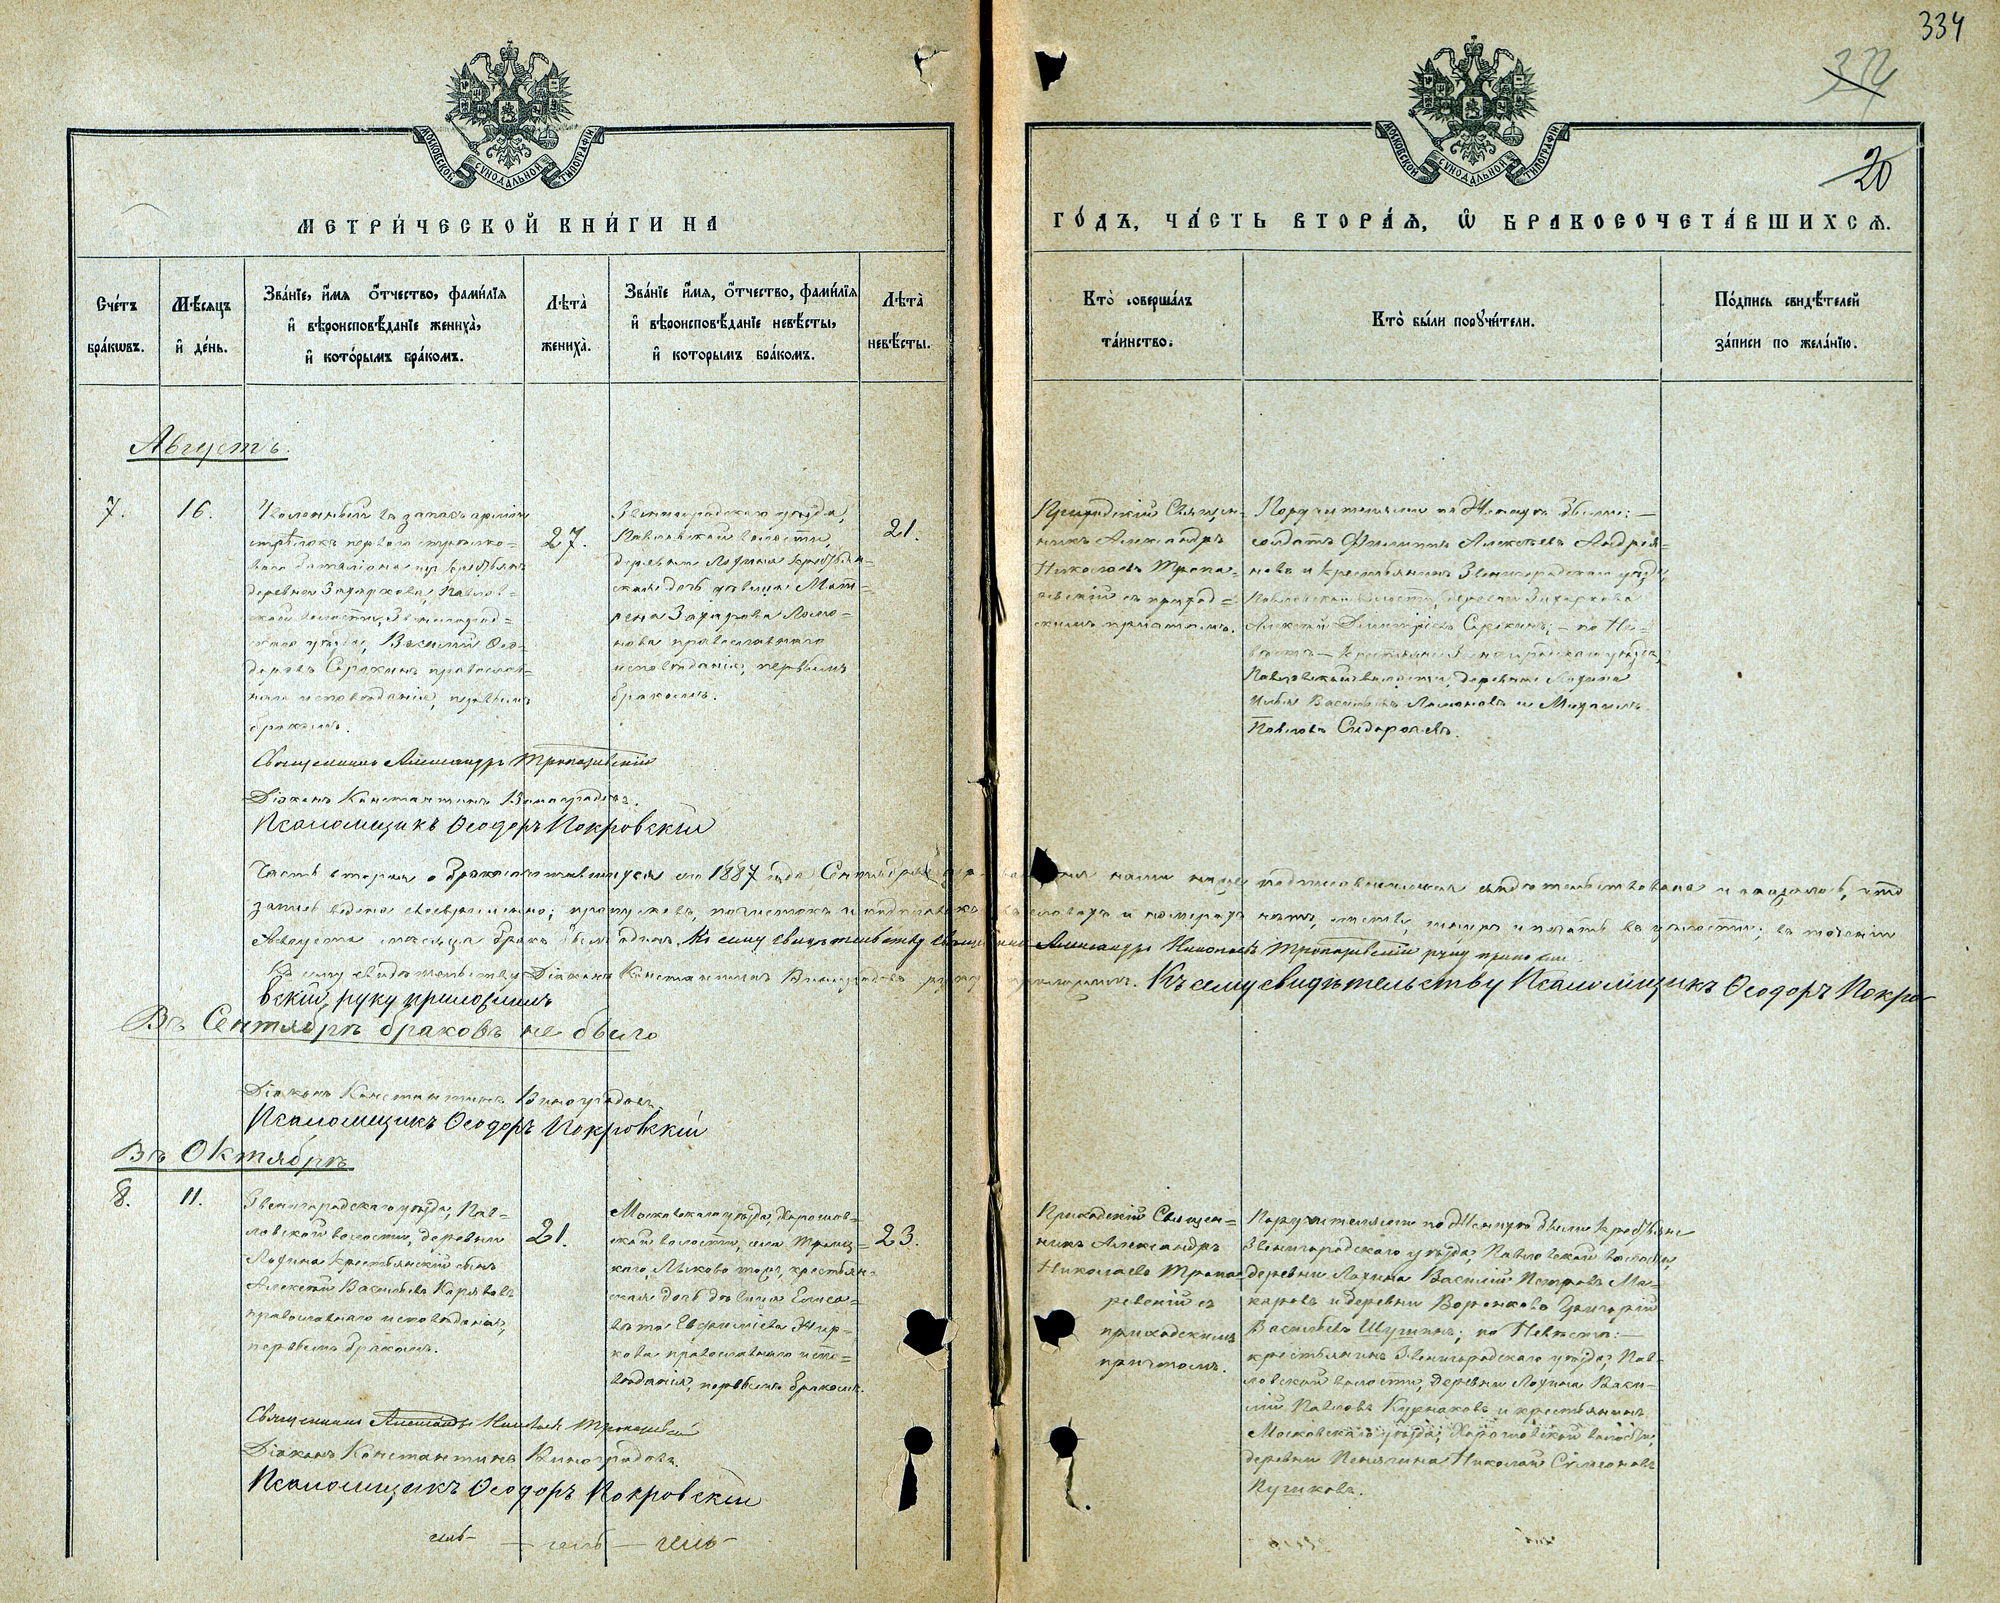 334
20
МОСКОВСКОЙ СѴНОДАЛЬНОЙ ТИПОГРАФІИ
МОСКОВСКОЙ СѴНОДАЛЬНОЙ ТИПОГРАФІИ
МЕТРИ́ЧЕСКОЙ КНИ́ГИ НА
ГО́ДЪ, ЧА́СТЬ ВТОРА́Я, Ѽ БРАКОСОЧЕТА́ВШИХСЯ.
Сче́тъ бра́кѡвъ.
Мѣ́сяцъ и де́нь.
Зва́нїе, и́мя ѻ́тчество, фами́лїя и вѣроисповѣ́данїе жениха̀, и кото́рымъ бра́комъ.
Лѣта̀ жениха̀.
Зва́нїе и́мя, ѻ́тчество, фами́лїя и вѣроисповѣ́данїе невѣ́сты, и которымъ бра́комъ.
Лѣта̀ невѣ́сты.
Кто̀ соверша́лъ та́инство.
Кто̀ бы́ли порꙋчи́тели.
По́дпись свидѣ́телей за́писи по жела́нїю.
Августъ.
7.
16.
Уволенный въ запасъ арміи
стрѣлокъ перваго стрѣлко=
ваго баталіона изъ крестьянъ
деревни Захаркова, Павлов=
ской волости, Звенигород=
скаго уѣзда, Василій Ѳео=
доровъ Сорокинъ православ=
наго исповѣданія, первымъ
бракомъ.
27.
Звенигородскаго уѣзда,
Павловской волости,
деревни Лохина крестьян=
ская дочь дѣвица Мат=
рена Захарова Ломо=
нова православнаго
исповѣданія, первымъ
бракомъ.
21.
Приходскій Священ=
никъ Александръ
Николаевъ Тропа=
ревскій съ приход=
скимъ причтомъ.
Поручителями по Женихѣ были: —
солдатъ Филиппъ Алексѣевъ Андрея=
новъ и крестьянинъ Звенигородскаго уѣзда,
Павловской волости, деревни Захаркова
Алексѣй Димитріевъ Сорокинъ; — по Не=
вѣстѣ — крестьяне Звенигородскаго уѣзда,
Павловской волости, деревни Лохина
Илья Васильевъ Ломоновъ и Михаилъ
Павловъ Сидоровъ.
Священникъ Александръ Тропаревскій
Діаконъ Константинъ Виноградовъ.
Псаломщикъ Ѳеодоръ Покровскій
Часть вторая о бракосочетавшихся за 1887 года Сентября дня нами ниже подписавшимися свидѣтельствована и оказалось, что
запись ведена своевременно; пропусковъ, почистокъ и подправокъ въ словахъ и номерахъ нѣтъ, листы, шнуръ и печать въ цѣлости; въ теченіи
Августа мѣсяца бракъ былъ одинъ. Къ сему свидѣтельству священникъ Александръ Николаевъ Тропаревскій руку приложилъ.
Къ сему свидѣтельству Діаконъ Константинъ Виноградовъ руку приложилъ. Къ сему свидѣтельству Псаломщикъ Ѳеодоръ Покро=
вскій руку приложилъ
Въ Сентябрѣ браковъ не было
Діаконъ Константинъ Виноградовъ.
Псаломщикъ Ѳеодоръ Покровскій
Въ Октябрѣ
8.
11.
Звенигородскаго уѣзда, Пав=
ловской волости, деревни
Лохина крестьянскій сынъ
Алексѣй Васильевъ
православнаго исповѣданія,
первымъ бракомъ.
21.
Московскаго уѣзда, Хорошов=
ской волости, села Троиц=
каго, Лыково тожъ, крестьян=
ская дочь дѣвица Елиса=
вета Евфиміева Жир=
кова православнаго испо=
вѣданія, первымъ бракомъ.
23.
Приходскій Священ=
никъ Александръ
Николаевъ Тропа=
ревскій съ
приходскимъ
причтомъ.
Поручителями по Женихѣ были крестьяне
Звенигородскаго уѣзда, Павловской волости,
деревни Лохина Василій Петровъ Ма=
каровъ и деревни Воронково Григорій
Васильевъ Шугинъ; по Невѣстѣ: —
крестьянинъ Звенигородскаго уѣзда, Пав=
ловской волости, деревни Лохина Васи=
лій Павловъ Курнаковъ и крестьянинъ
Московскаго уѣзда, Хорошовской волости,
деревни Пенягина Николай Симеоновъ
Пугиковъ.
Священникъ Александръ Николаевъ Тропаревскій
Діаконъ Константинъ Виноградовъ.
Псаломщикъ Ѳеодоръ Покровскій